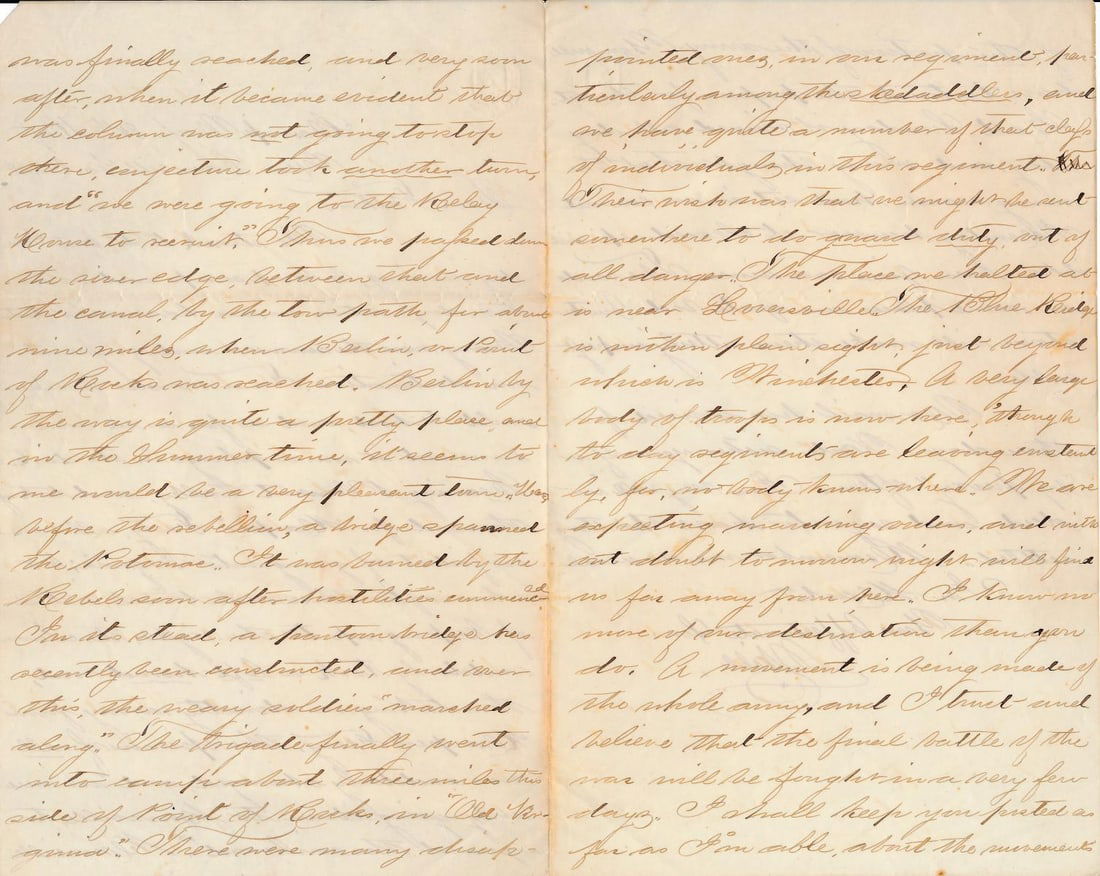 was finally reached, and very soon
after, when it became evident that
the column was not going to stop
there, conjecture took another turn,
and "we were going to the Relay
House to recruit." Thus we passed down
the river edge, between that and
the canal, by the tow path, for about
nine miles, when Berlin, or Point
of Rocks was reached. Berlin by
the way is quite a pretty place, and
in the Summer time, it seems to
me would be a very pleasant town.
before the rebellion, a bridge spanned
the Potomac. It was burned by the
Rebels soon after hostilities commenced
In its stead, a pontoon bridge has
recently been constructed, and over
this, the weary soldiers "marched
along." The brigade finally went
into camp about three miles this
side of Point of Rocks, in "Old Vir-
ginia". There were many disap-
pointed ones, in our regiment, par-
ticularly among the skedaddlers, and
we have quite a number of that class
of individuals, in this regiment.
Their wish was that we might be sent
somewhere to do guard duty, out of
all danger. The place we halted at
is near Loversville. The Blue Ridge
is within plain sight, just beyond
which is Winchester. A very large
body of troops is now here, though
to day regiments are leaving constant
ly, for, no body knows where. We are
expecting marching orders, and with
out doubt to morrow night will find
us far away from here. I know no
more of our destination than you
do. A movement is being made of
the whole army, and I trust and
believe that the final battle of the
war will be fought in a very few
days. I shall keep you posted as
far as I'm able, about the movements